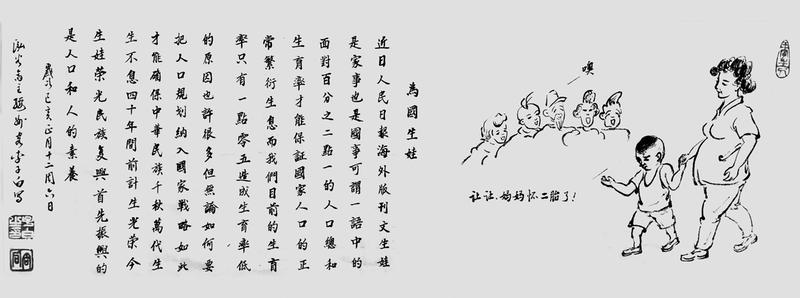 為國生娃
近日人民日報海外版刊文生娃
是家事也是國事可謂一語中的
面對百分之二點一的人口總和
生育率才能保証國家人口的正
常繁衍生息而我們目前的生育
率只有一點零五造成生育率低
的原因也許很多但無論如何要
把人口規划納入國家戰略如此
才能確保中華民族千秋萬代生
生不息四十年間前計生光榮今
生娃榮光民族复興首先振興的
是人口和人的素養
歲次己亥正月十二周六日
李子白写
噢
让让,妈妈怀二胎了!